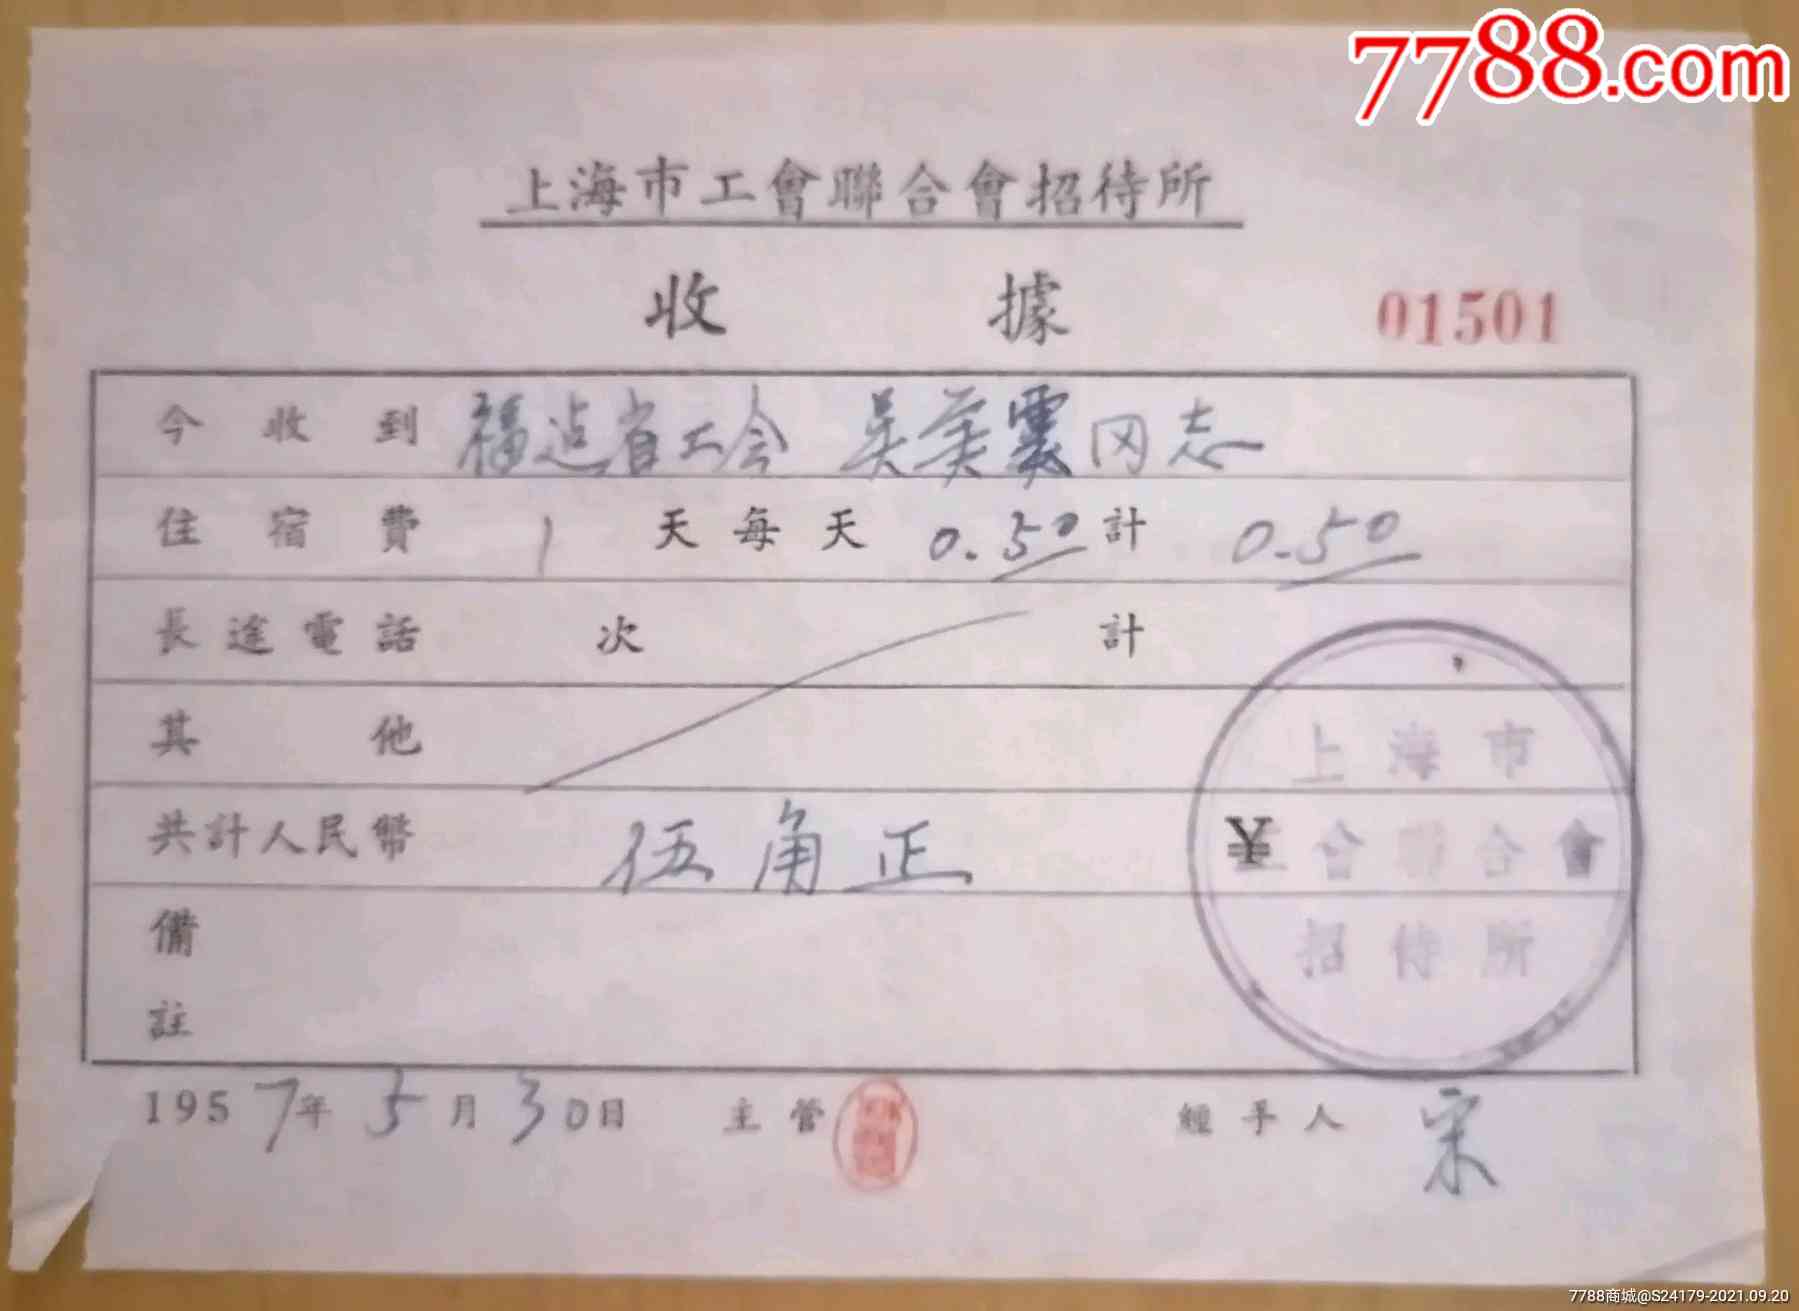 7788.com
上海市工會聯合會招待所
收據
01501
今收到 福建省工会 吴美雲同志
住宿費 1 天每天 0.50 計 0.50
長途電話 次 計
其他
共計人民幣 伍角正 ¥
備註
上海市
工會聯合會
招待所
1957年5月30日 主管 經手人 宋
7788商城@S24179-2021.09.20